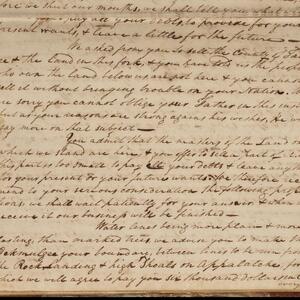 fore we shut our mouths, we shall tell you what
pay all your Debts, to provide for your
present wants, & leave a little for the future —
We asked from you to sell the County of
& the Land in this fork, & you have told us the people
who own the land below us are not here & you cannot
sell it without bringing trouble on your Nation.
are sorry you cannot oblige your Father in this
but as your reasons are strong against his wishes, He
say more on that subject —
You admit that the masters of the Land on
which we stand are here & you offer to sell a part of it
this part is too small to pay your debts & leave any
for your present or your future wants. We therefore
mend to your serious consideration the following
tions; we shall wait patiently for your answer & when
receive it our business will be finished —
Water lines being more plain & more
lasting, than marked trees, we advise you to make the
Oakmulgee your boundary, between lines to be run from
the Rock Landing & high Shoals on Appalatchee, for
which we will agree to pay you six thousand dollars